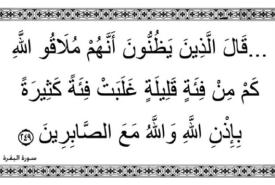 ...قَالَ الَّذِينَ يَظُنُّونَ أَنَّهُمْ مُلَاقُو اللَّهِ
كَمْ مِنْ فِئَةٍ قَلِيلَةٍ غَلَبَتْ فِئَةً كَثِيرَةً
بِإِذْنِ اللَّهِ وَاللَّهُ مَعَ الصَّابِرِينَ ﴿٢٤٩﴾
سورة البقرة